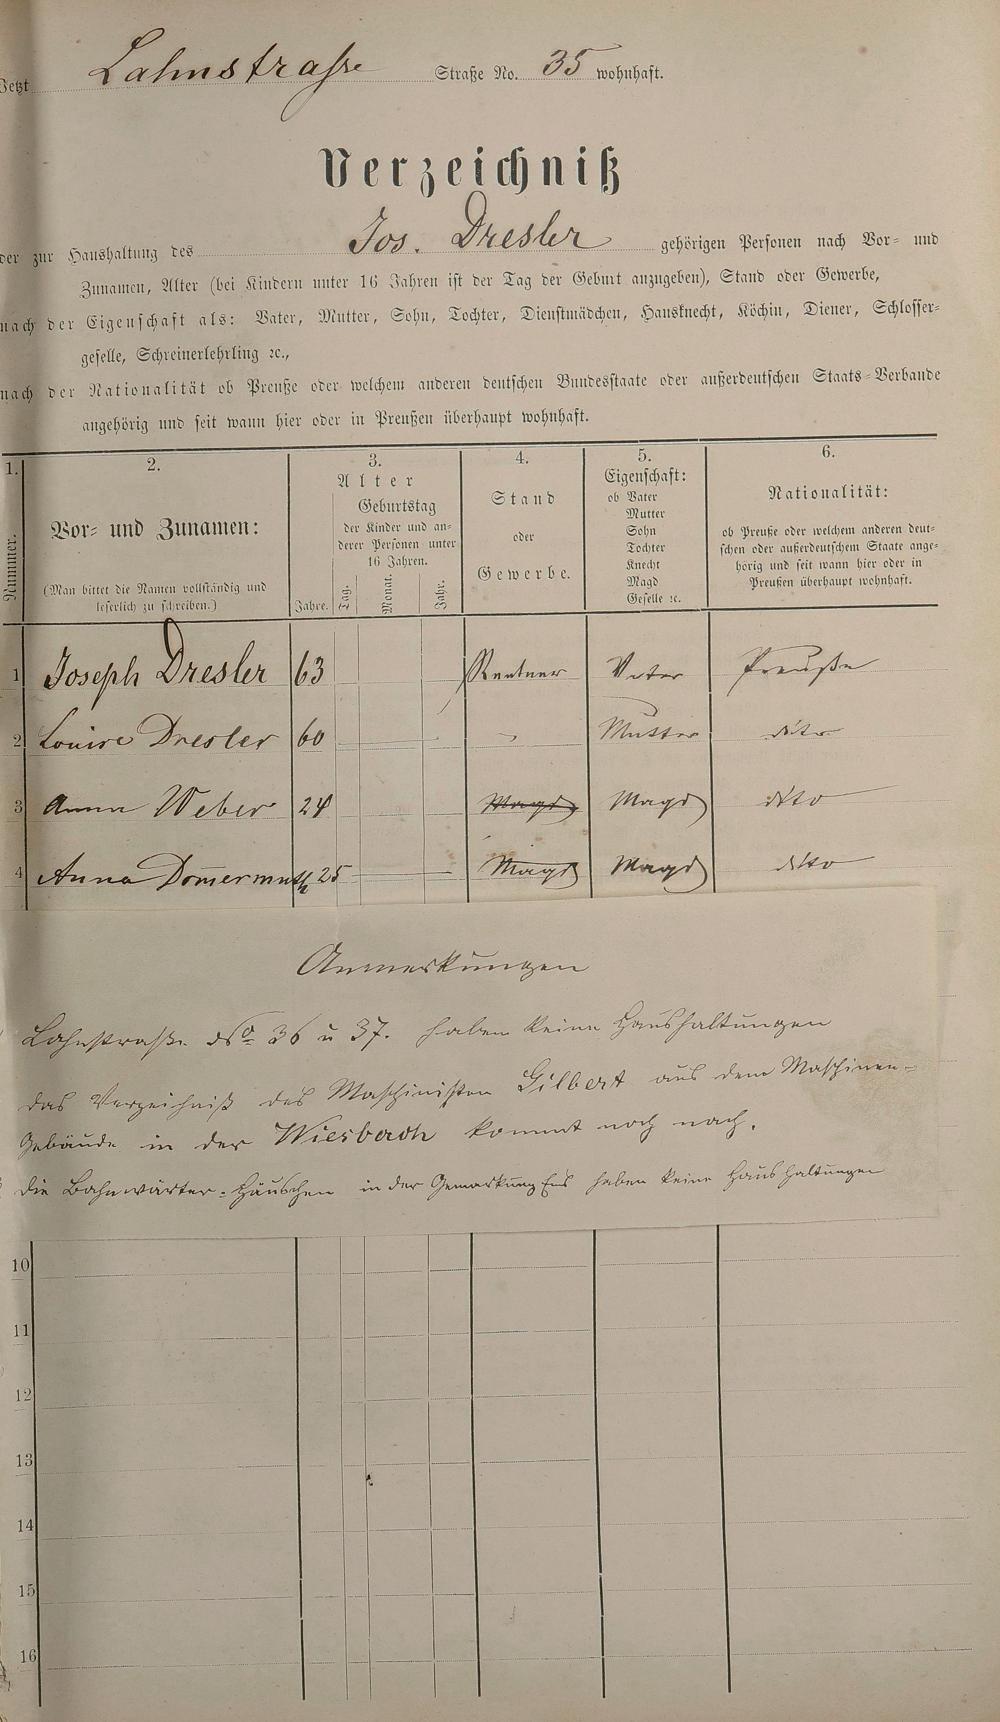 Jetzt Lahnstraße Straße No. 35 wohnhaft.
Verzeichniß
der zur Haushaltung des Jos. Dresler gehörigen Personen nach Vor- und
Zunamen, Alter (bei Kindern unter 16 Jahren ist der Tag der Geburt anzugeben), Stand oder Gewerbe,
nach der Eigenschaft als: Vater, Mutter, Sohn, Tochter, Dienstmädchen, Hausknecht, Köchin, Diener, Schlosser-
geselle, Schreinerlehrling ꝛc.,
nach der Nationalität ob Preuße oder welchem anderen deutschen Bundesstaate oder außerdeutschen Staats-Verbande
angehörig und seit wann hier oder in Preußen überhaupt wohnhaft.
1.
Nummer.
2.
Vor- und Zunamen:
(Man bittet die Namen vollständig und
leserlich zu schreiben.)
3.
Alter
Jahre.
Geburtstag
der Kinder und an-
derer Personen unter
16 Jahren.
Tag.
Monat.
Jahr.
4.
Stand
oder
Gewerbe.
5.
Eigenschaft:
ob Vater
Mutter
Sohn
Tochter
Knecht
Magd
Geselle ꝛc.
6.
Nationalität:
ob Preuße oder welchem anderen deut-
schen oder außerdeutschem Staate ange-
hörig und seit wann hier oder in
Preußen überhaupt wohnhaft.
1 Joseph Dresler 63 Rentner Vater Preuße
2 Louise Dresler 60 Mutter dito
3 Anna Weber 24 Magd Magd dito
4 Anna Dom̄ermuth 25 Magd Magd dito
Anmerkungen
Lahnstraße No 36 u 37. haben keine Haushaltungen
das Verzeichniß des Maschinisten Gilbert aus dem Maschinen-
Gebäude in der Wiesbach kommt noch nach.
Die Bahnwärter-Häuschen in der Gemarkung Ems haben keine Haushaltungen
10
11
12
13
14
15
16